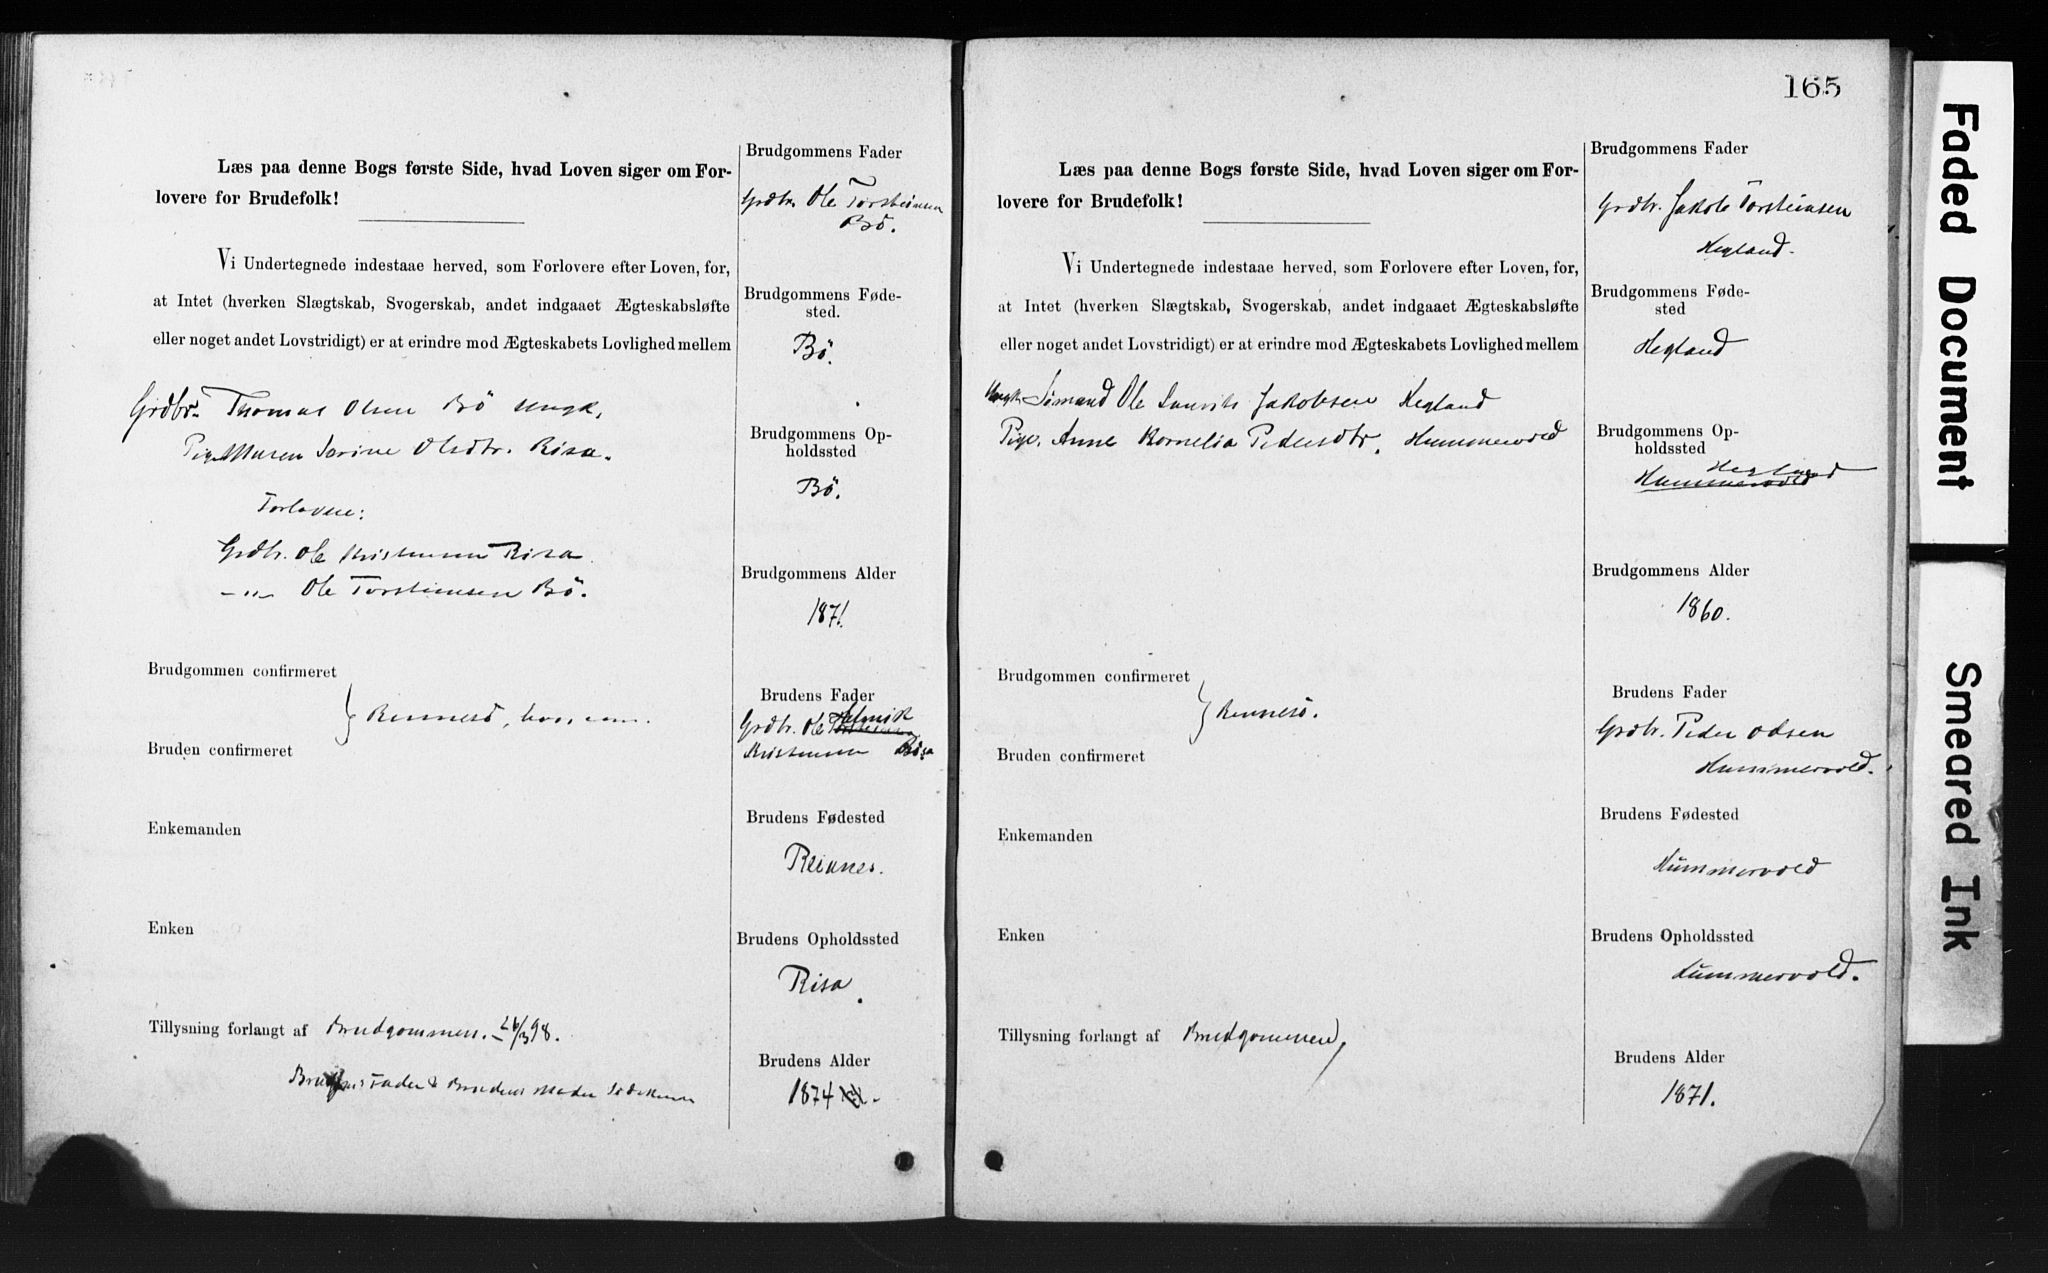 Læs paa denne Bogs første Side, hvad Loven siger om For-
lovere for Brudefolk!
Vi Undertegnede indestaae herved, som Forlovere efter Loven, for,
at Intet (hverken Slægtskab, Svogerskab, andet indgaaet Ægteskabsløfte
eller noget andet Lovstridigt) er at erindre mod Ægteskabets Lovlighed mellem
Grdbr. Thomas Olsen Bö Ungk.
Pige Maren Serine Olsdtr. Risa.
Forlovere:
Grdbr. Ole Kristensen Risa.
-„- Ole Torsteinsen Bö.
Brudgommen confirmeret
Rennesö,
Bruden confirmeret
Enkemanden
Enken
Tillysning forlangt af Brudgommen. 26/3 98.
Fader & Brudens Moder
Brudgommens Fader
Grdbr. Ole Torsteinsen
Bö.
Brudgommens Føde-
sted.
Bö.
Brudgommens Op-
holdssted
Bö.
Brudgommens Alder
1871.
Brudens Fader
Grdbr. Ole
Kristensen Risa
Brudens Fødested
Reianes.
Brudens Opholdssted
Risa.
Brudens Alder
1874
165
Læs paa denne Bogs første Side, hvad Loven siger om For-
lovere for Brudefolk!
Vi Undertegnede indestaae herved, som Forlovere efter Loven, for,
at Intet (hverken Slægtskab, Svogerskab, andet indgaaet Ægteskabsløfte
eller noget andet Lovstridigt) er at erindre mod Ægteskabets Lovlighed mellem
Ungk. Sömand Ole Laurits Jakobsen Hegland
Pige. Anne Kornelia Pedersdtr. Hummervold
Brudgommen confirmeret
Rennesö.
Bruden confirmeret
Enkemanden
Enken
Tillysning forlangt af Brudgommen,
Brudgommens Fader
Grdbr. Jakob Torsteinsen
Hegland.
Brudgommens Føde-
sted
Hegland
Brudgommens Op-
holdssted
Hegland
Hummervold
Brudgommens Alder
1860.
Brudens Fader
Grdbr. Peder Olsen
Hummervold.
Brudens Fødested
Hummervold
Brudens Opholdssted
Hummervold.
Brudens Alder
1871.
Faded Document
Smeared Ink